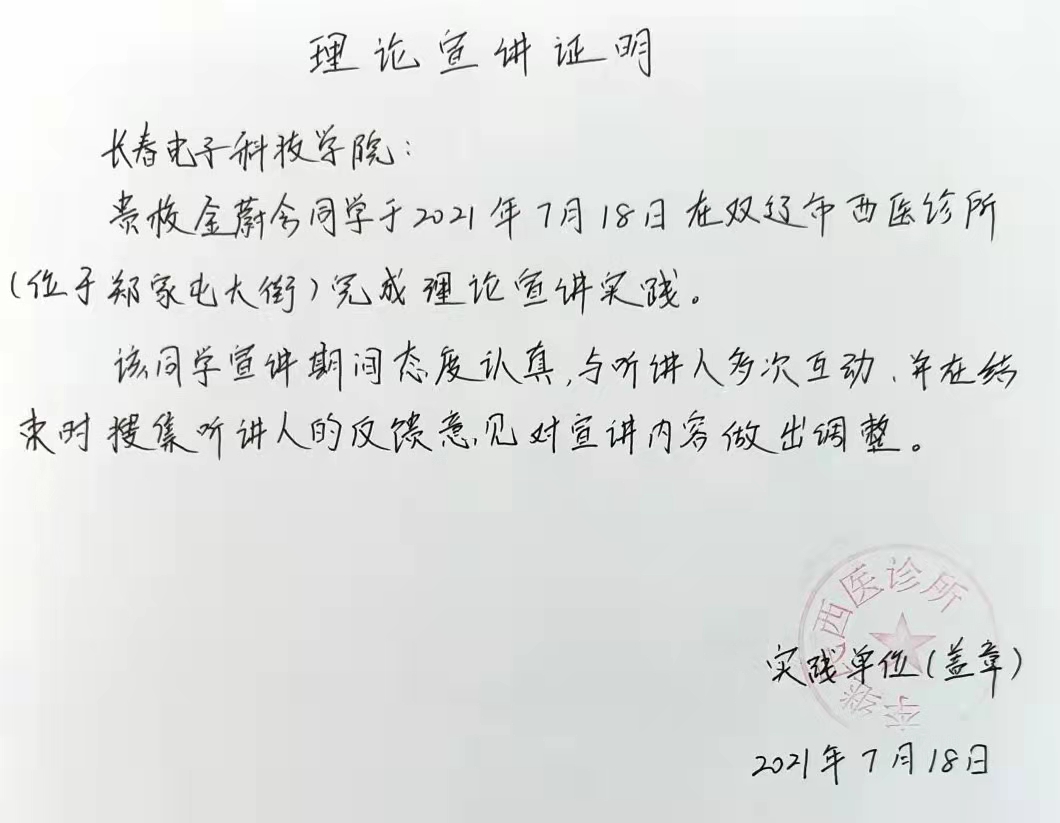 理论宣讲证明
长春电子科技学院:
贵校金蔚今同学于2021年7月18日在双辽市西医诊所
(位于郑家屯大街)完成理论宣讲实践。
该同学宣讲期间态度认真,与听讲人多次互动、并在结
束时搜集听讲人的反馈意见对宣讲内容做出调整。
西医诊所
实践单位(盖章)
2021年7月18日